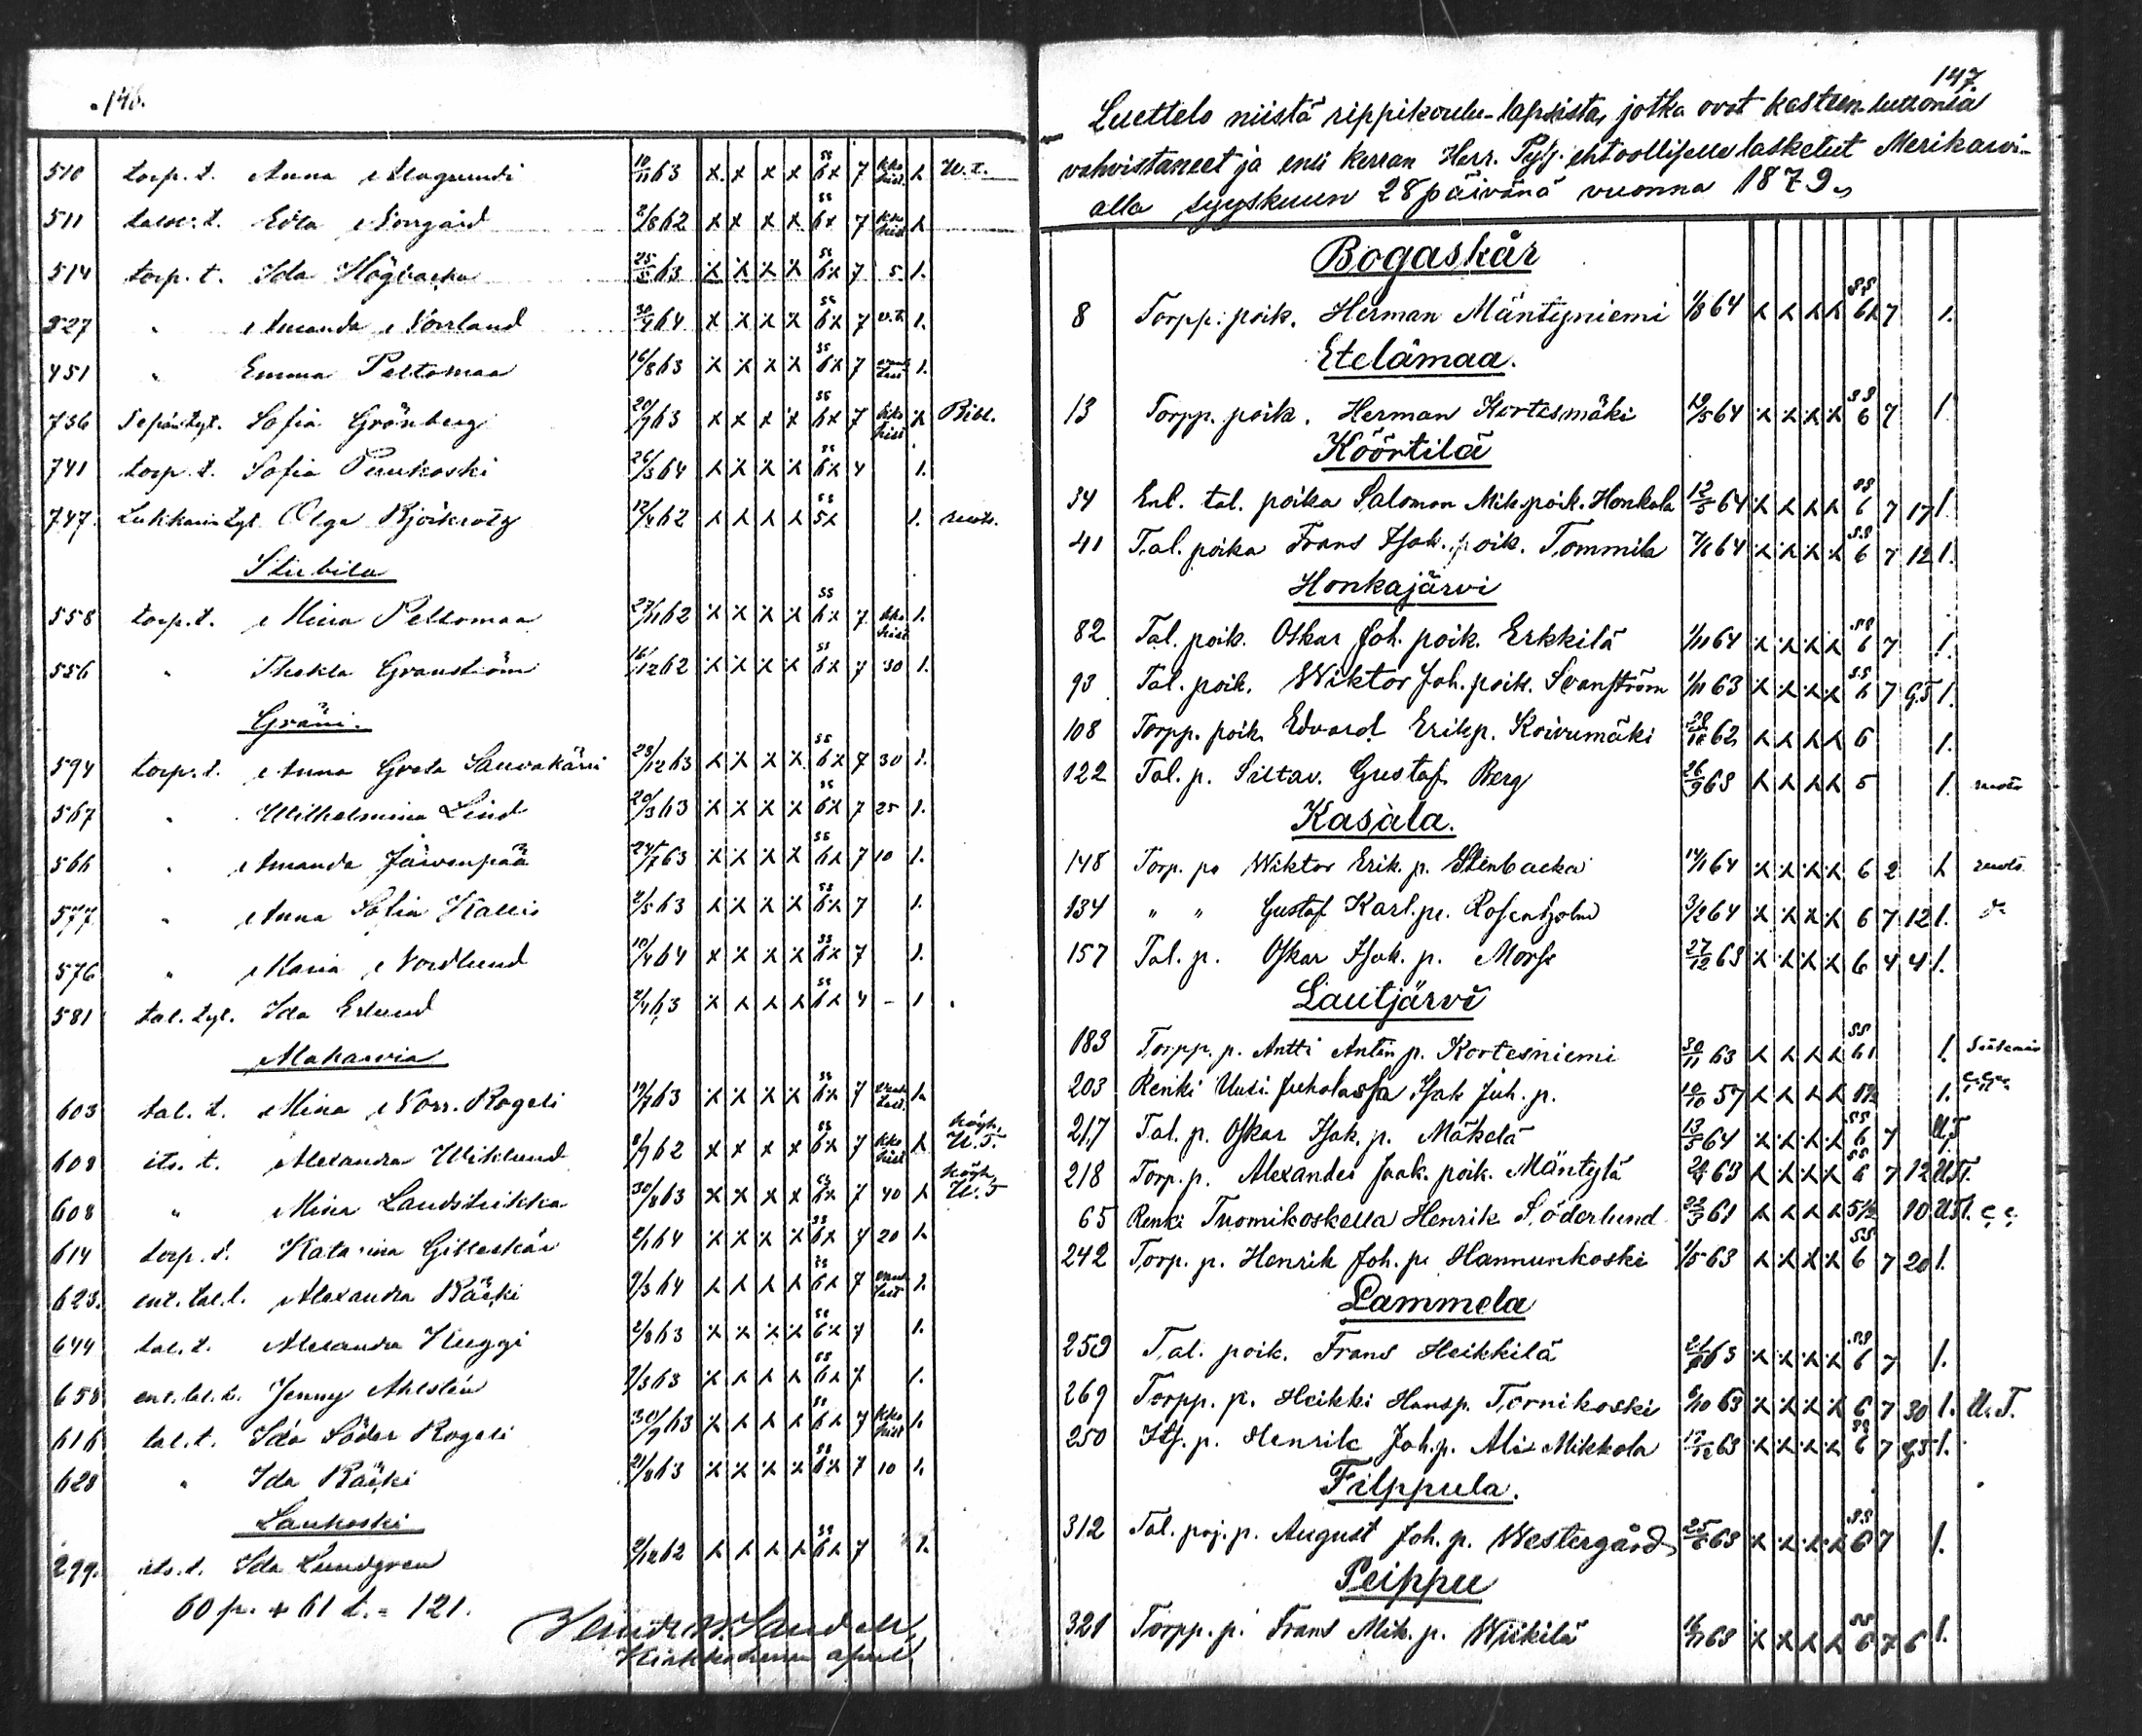 146.
510 torp. t. Anna Alagrundi 10/11 63 x x x x 6x 7 kko hist x U. T.
511 taloc. t. Edla Norrgård 2/8 62 x x x x 6x 7 kko hist x
514 torp. t. Ida Högbacka 25/5 63 x x x x 6x 7 5. 1.
527 " Amanda Norrland 30/4 64 x x x x 6x 7 1.
451 " Emma Peltomaa 16/8 63 x x x x 6x 7 1.
736 Sepän tyt. Sofia Grönberg 20/9 63 x x x x 6x 7 kko hist x Bibl.
741 torp. t. Sofia Paukoski 26/3 64 x x x x 6x 4 1.
747 Lukkarin tyt. Olga 12/4 62 x x x x 5x 1. ruots.
Stubila
558 torp. t. Mina Peltomaa 27/11 62 x x x x 6x 7 kko hist 1.
556 " Thekla Granström 16/12 62 x x x x 6x 7 30 1.
Gräni.
594 torp. t. Anna Greta 28/12 63 x x x x 6x 7 30 1.
567 " Wilhelmina Lind 20/3 63 x x x x 6x 7 25 1.
566 " Amanda Järvenpää 24/7 63 x x x x 6x 7 10 1.
577 " Anna Sofia Kallis 2/5 63 x x x x 6x 7 1.
576 " Maria Nordlund 10/4 64 x x x x 6x 7 1.
581 tal. tyt. Ida Erlund 2/4 63 x x x x 6x 4 - 1
Alakarvia
603 tal. t. Mina Norr. Rogeli 19/7 63 x x x x 6x 7 1.
609 its. t. Alexandra Wiklund 8/9 62 x x x x 6x 7 kko hist x U. T.
608 " Mina 30/8 63 x x x x 6x 7 40 x U. T
614 torp. t. Katarina Gilleskär 2/1 64 x x x x 6x 7 20 1.
623. ent. tal. t. Alexandra Bäcki 9/3 64 x x x x 6x 7 1.
644 tal. t. Alexandra Kuggi 2/8 63 x x x x 6x 7 1.
658 ent. tal. t. Jenny Ahlstén 2/3 63 x x x x 6x 7 1.
616 tal. t. Ida Söder Rogeli 30/9 63 x x x x 6x 7 kko hist 1.
628 " Ida Bäcki 21/8 63 x x x x 6x 7 10 1.
Laukoski
299. its. t. Ida Lundgren 2/12 62 x x x x 6x 7 1.
60 p. + 61 t. = 121.
Kirkkoherran apul.
147.
Luettelo niistä rippikoulu-lapsista, jotka ovat kasteen-liittonsa
vahvistaneet ja ensi kerran Herr. Pyh. ehtoolliselle lasketut Merikarvi-
alla syyskuun 28 päivänä vuonna 1879.
Bogaskär
8 Torpp. poik. Herman Mäntyniemi 1/8 64 x x x x 6x 7 1.
Etelämaa.
13 Torpp. poik. Herman Kortesmäki 19/5 64 x x x x 6 7 1.
Köörtilä
34 Enl. tal. poika Salomon Mik. poik. Honkala 12/5 64 x x x x 6 7 17 1.
41 Tal. poika Frans Isak. poik. Tommila 7/6 64 x x x x 6 7 12 1.
Honkajärvi
82 Tal. poik. Oskar Joh. poik. Erkkilä 1/11 64 x x x x 6 7 1.
93 Tal. poik. Wiktor Joh. poik. Svanström 1/11 63 x x x x 6 7 1.
108 Torpp. poik. Edvard Erikp. Koivumäki 28/10 62 x x x x 6 1.
122 Tal. p. Siltav. Gustaf Berg 26/9 63 x x x x 5 1. ruots
Kasala.
148 Torp. po Wiktor Erik. p. Stenbacka 14/1 64 x x x x 6 2 1 ruots.
134 " " Gustaf Karl. p. Rosenholm 3/2 64 x x x x 6 7 12 1.
157 Tal. p. Oskar Isak. p. Mors 27/12 63 x x x x 6 4 4 1.
Lautjärvi
183 Torpp. p. Antti Antin p. Kortesniemi 30/11 63 x x x x 6 1 1. Siikais
203 Renki Uusi Juholassa Isak Juh. p. 10/10 57 x x x x 1.
217 Tal. p. Oskar Isak. p. Mäkelä 13/5 64 x x x x 6 7 U.T
218 Torp. p. Alexander Jaak. poik. Mäntylä 63 x x x x 6 7 12 U.T.
65 Renki Tuomikoskella Henrik Söderlund 22/3 61 x x x x 5½ 10 U.T.
242 Torp. p. Henrik Joh. p. Hannunkoski 1/5 63 x x x x 6 7 20 1.
Lammela
259 Tal. poik. Frans Heikkilä 63 x x x x 6 7 1.
269 Torpp. p. Heikki Hansp. Tornikoski 6/10 63 x x x x 6 7 30 1. U. T.
250 Its. p. Henrik Joh. p. Ali Mikkola 63 x x x x 6 7 1.
Filppula.
312 Tal. poj. p. August Joh. p. Westergård 63 x x x x 6 7 1.
Peippu
321 Torpp. p. Frans Mik. p. Wiikilä 63 x x x x 6 7 6 1.